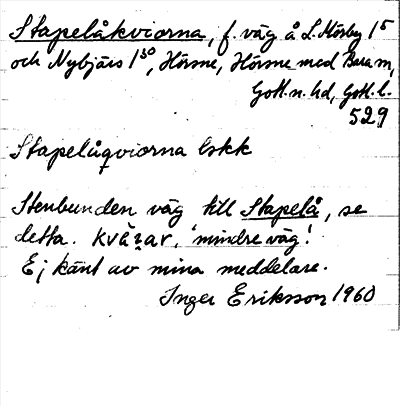 Stapelåkviorna, f. väg å L. Hörby 1⁵
och Nybjärs 1³⁰, Hörsne, Hörsne med Bara sn,
Gotl. n. hd, Gotl. l.
529
Stapelåqviorna lskk
Stenbunden väg till Stapelå, se
detta. kväṛar, "mindre väg".
Ej känt av mina meddelare.
Inger Eriksson 1960